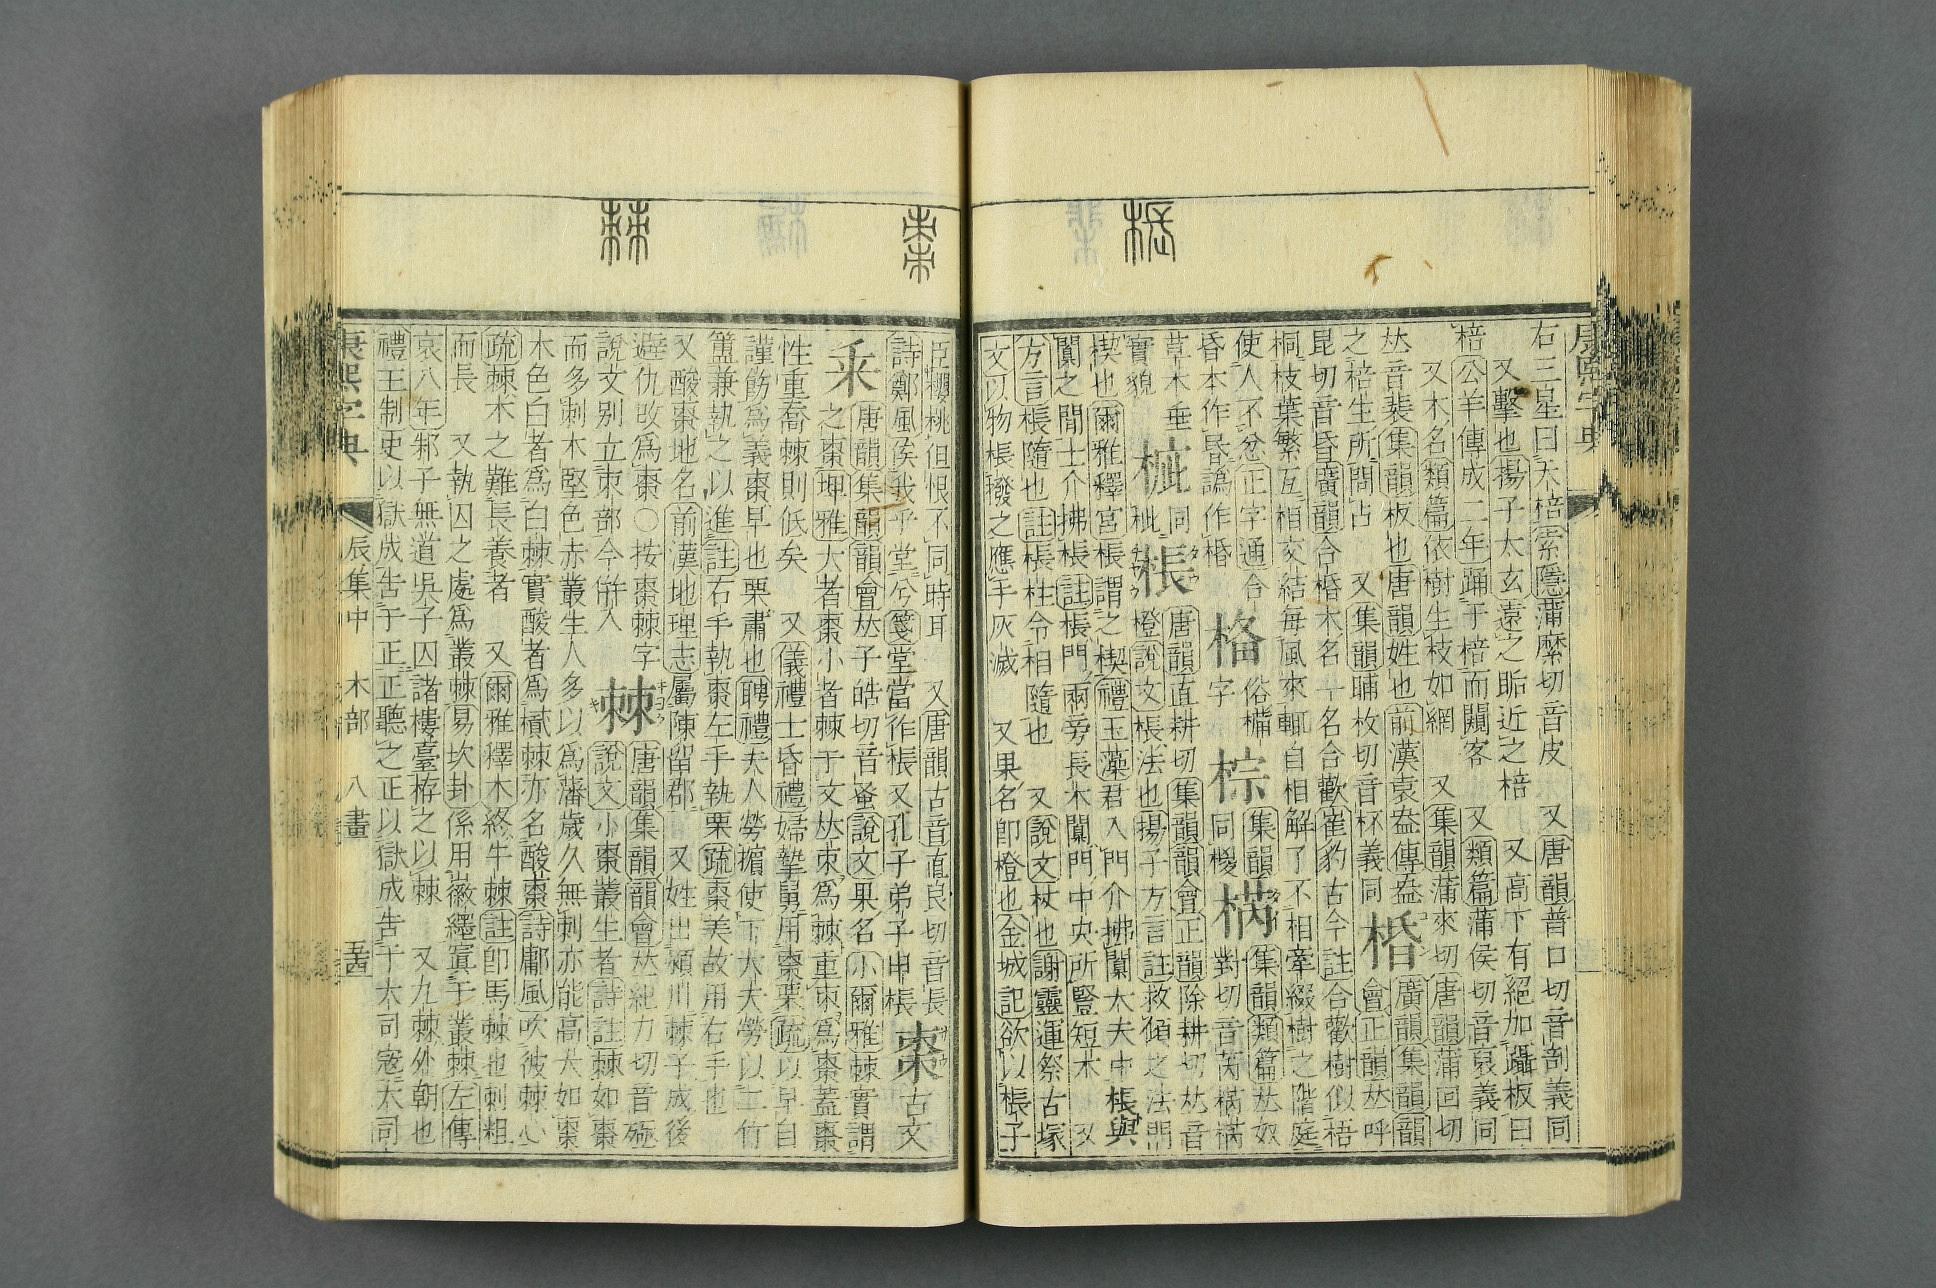 棖
右三星曰天棓索隱蒲縻切音皮 又唐韻普口切音剖義同
又擊也揚子太玄遠之眂近之棓 又高下有絕加躡板曰
棓公羊傳成二年踊于棓而闚客 又類篇蒲侯切音裒義同
又木名類篇依樹生枝如網 又集韻蒲來切唐韻蒲回切
𠀤音裴集韻板也唐韻姓也前漢袁盎傳盎
之棓生所問占 又集韻晡枚切音杯義同
棔
廣韻集韻韻
會正韻𠀤呼
昆切音昏廣韻合棔木名一名合歡崔豹古今註合歡樹似梧
桐枝葉繁互相交結每風來輒自相解了不相牽綴樹之階庭
使人不忿正字通合
昏本作昏譌作棔
俗構
字
棕
集韻
同椶
集韻類篇𠀤奴
對切音芮
草木垂
實貌
同
棖
唐韻直耕切集韻韻會正韻除耕切𠀤音
橙說文棖法也揚子方言註救傾之法門
楔也爾雅釋宮棖謂之楔禮玉藻君入門介拂闑大夫中棖與
闑之閒士介拂棖註棖門兩旁長木闑門中央所豎短木 又
方言棖隨也註棖柱令相隨也 又說文杖也謝靈運祭古塚
文以物棖撥之應手灰滅 又果名卽橙也金城記欲以棖子
棗
棘
臣櫻桃但恨不同時耳 又唐韻古音直良切音長
詩鄭風俟我乎堂兮箋堂當作棖又孔子弟子申棖
棗
古文
唐韻集韻韻會𠀤子皓切音蚤說文果名小爾雅棘實謂
之棗埤雅大者棗小者棘于文𠀤朿爲棘重朿爲棗蓋棗
性重喬棘則低矣 又儀禮士昏禮婦摯舅用棗栗疏以早自
謹飭爲義棗早也栗肅也聘禮夫人勞擯使下大夫勞以二竹
簠兼執之以進註右手執棗左手執栗疏棗美故用右手也
又酸棗地名前漢地理志屬陳留郡 又姓出潁川棘子成後
避仇改爲棗○按棗棘字
說文別立朿部今倂入
棘
唐韻集韻韻會𠀤紀力切音殛
說文小棗叢生者詩註棘如棗
而多刺木堅色赤叢生人多以爲藩歲久無刺亦能高大如棗
木色白者爲白棘實酸者爲樲棘亦名酸棗詩鄘風吹彼棘心
疏棘木之難長養者 又爾雅釋木終牛棘註卽馬棘也刺粗
而長 又執囚之處爲叢棘易坎卦係用徽纆寘于叢棘左傳
哀八年邾子無道吳子囚諸樓臺栫之以棘 又九棘外朝也
禮王制史以獄成告于正正聽之正以獄成告于大司寇大司
康煕字典 辰集中 木部 八畫